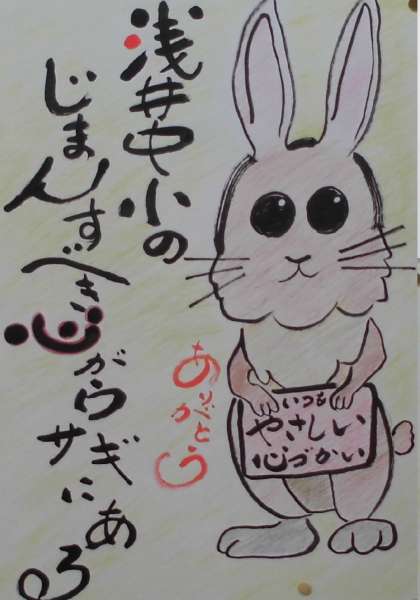 浅井中小の
じまんすべき
心が
ウサギに
ある
ありがとう
いつも
やさしい
心づかい